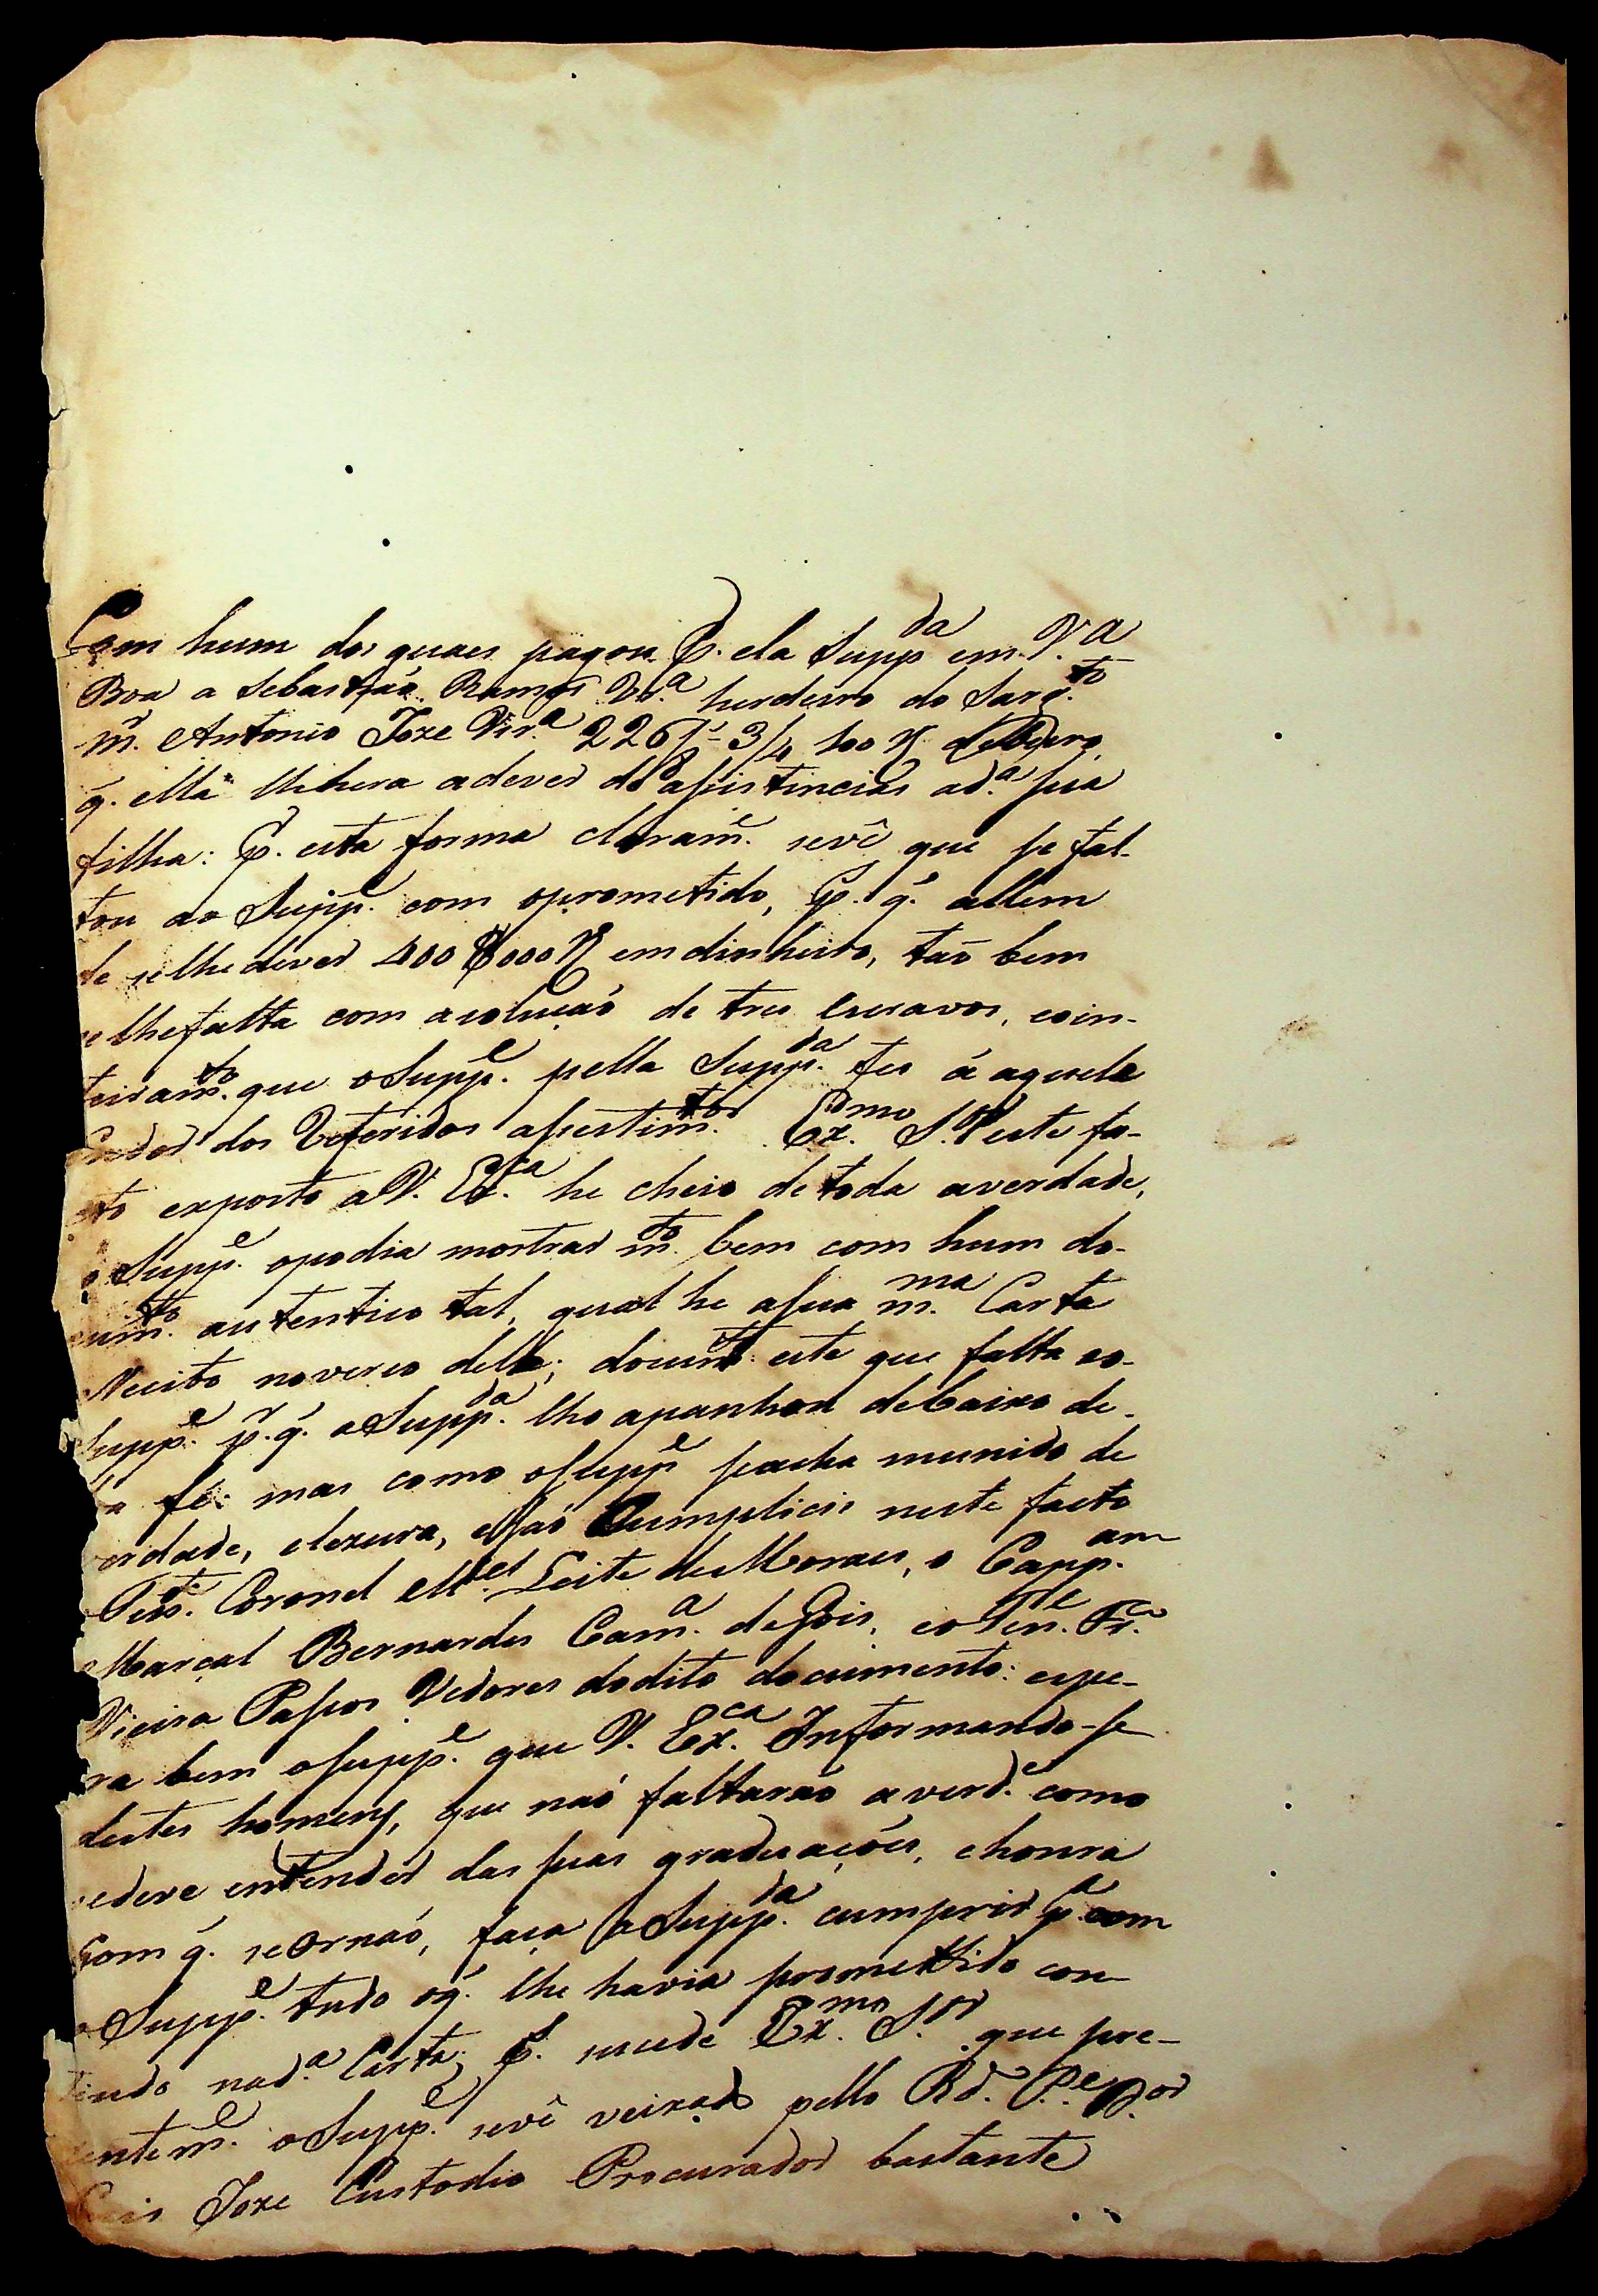 Com hum dos quaes pagou p. ela Supp.da em V.a
Boa a Sebastiaõ Ramos Vr.a herdeiro do Sarg.to
m. Antonio Joze Vir.a 226 /8 3/4 100 R.
q. ella lhe hera adever de asistincias ad.a sua
filha: P. esta forma claram.e sevê que se fal-
tou ao Supp.e com oprometido, p. q. allem
de selhe dever 400$000 R em dinheiro, taõ bem
se lhe falta com asoluçaõ de tres Escravos, coin-
teiram.to que oSupp.e pella Supp.da fes á aquele
dos Referidos asestim.tos Ex.mo S.r este fa-
cto exposto aV. Ex.ca he cheio de toda averdade,
o Supp.e opodia mostrar m.to bem com hum do-
cum.to autentico tal, qual he asua m.ma Carta
Recito noverso della; docum.to este que falta ao
Supp.e p.r q. aSupp.da lho apanhou debaixo de
fé: mas como oSupp.e seacha munido de
verdade, elezura, esaõ Cumplicis neste facto
Ten.te Coronel M.el Leite de Moraes, o Capp.am
Marçal Bernardes Cam.a de Gois, eo Ten.te Fr.co
Vieira Passos Vedores dodito documento: espe-
ra bem oSupp.e que V. Ex.ca Informando-se
destes homens, que naõ faltaraõ averd.e como
sedeve entender das suas graduações, ehonra
Com q. seOrnaõ, faça aSupp.da cumprir p.a com
oSupp.e tudo oq. lhe havia promettido con-
tindo nad.a Carta; P. sucede Ex.mo S.or que pre-
zentem.e oSupp.e sevê veixado pello Rd. P.e
Luis Joze Custodio Procurador bastante